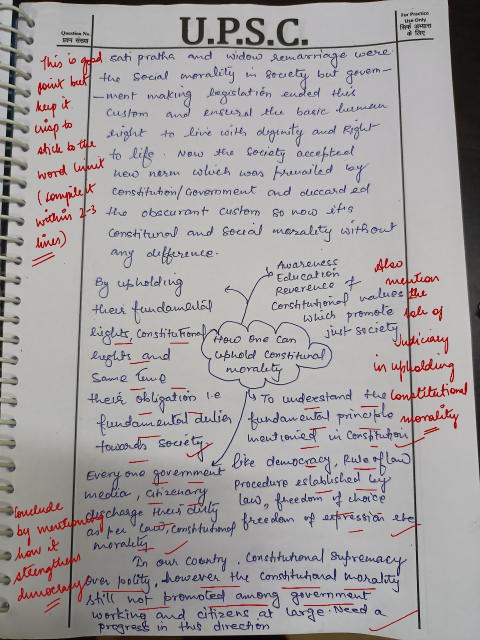 Question No.
प्रश्न संख्या
U.P.S.C.
For Practice
Use Only
सिर्फ अभ्यास
के लिए
This is good
point but
keep it
crisp to
stick to the
word limit
(complete it
within 2-3
lines)
sati pratha and widow remarriage were
the social morality in society but govern-
-ment making legislation ended this
custom and ensured the basic human
right to live with dignity and Right
to life. Now the society accepted
new norm which was prevailed by
Constitution/Government and discarded
the obscurant custom so now it's
Constitutional and social morality without
any difference.
By upholding
their fundamental
rights, Constitutional
rights and
same time
their obligation i.e
fundamental duties
towards society
Awareness
Education
Reverence of
Constitutional values
which promote
just society
Also
mention
the
role of
judiciary
in upholding
constitutional
morality
How one can
uphold constitunal
morality
To understand the
fundamental principle
mentioned in Constitution
like democracy, Rule of law
Procedure established by
law, freedom of choice
freedom of expression etc
Every one government
media, citizenary
discharge their duty
as per law, constitutional
morality
Conclude
by mentioning
how it
strengthens
democracy
In our country, Constitutional supremacy
over polity, however the Constitutional morality
still not promoted among government
working and citizens at large. Need a
progress in this direction